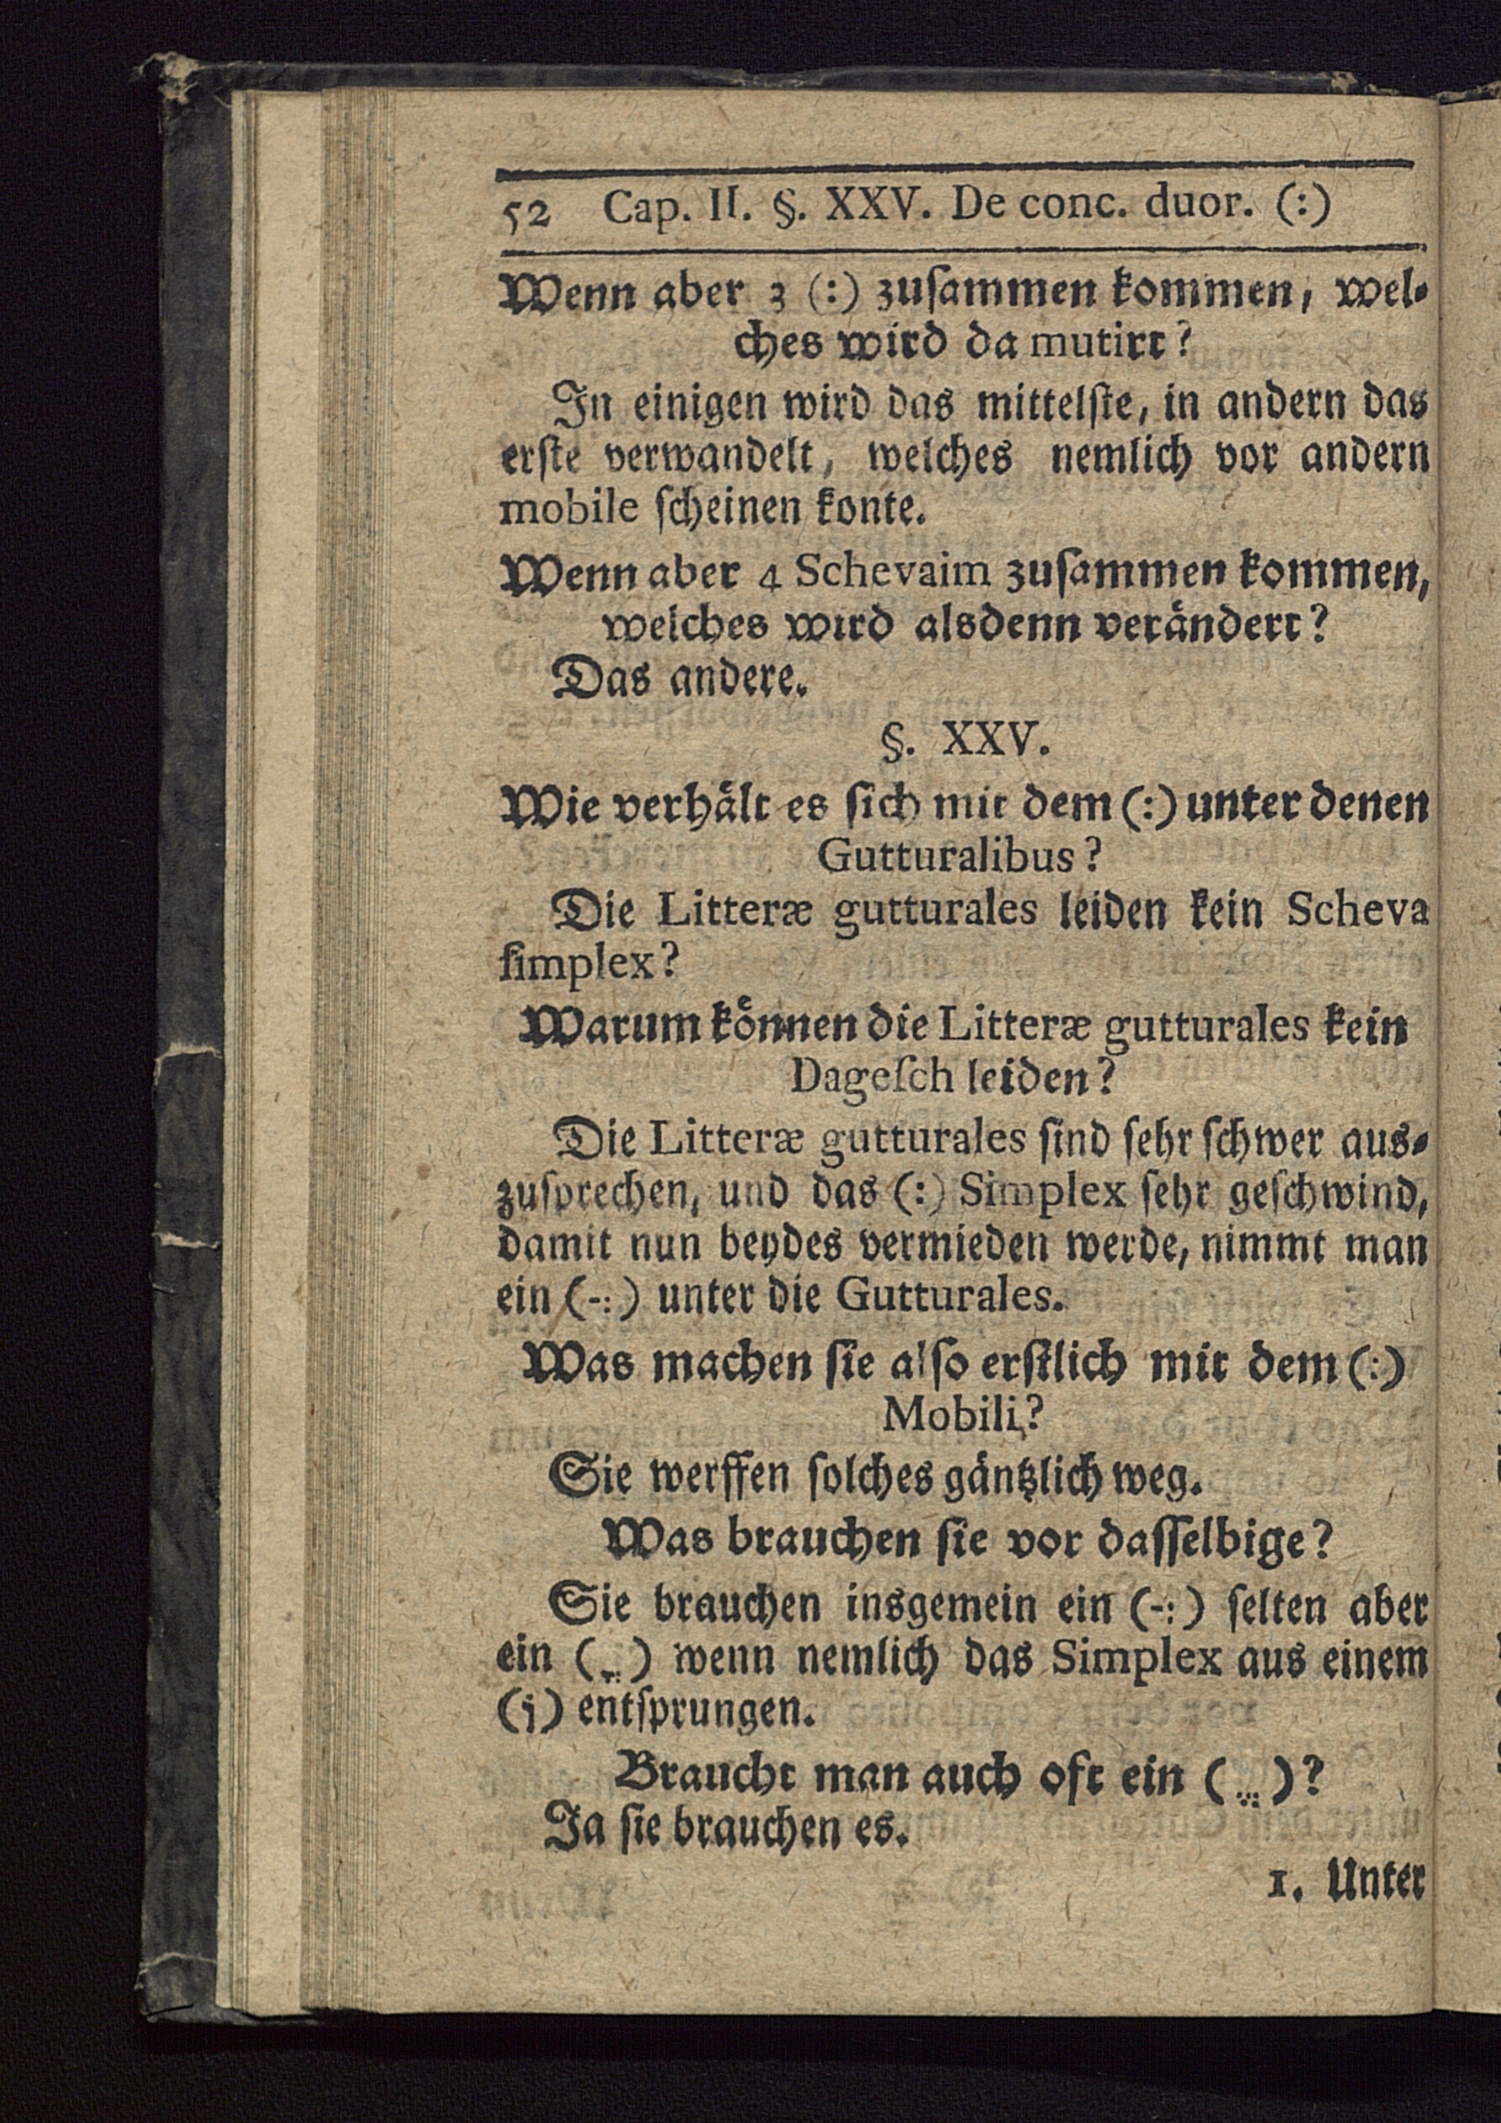 52 Cap. II. §. XXV. De conc. duor. (:)
Wenn aber 3 (:) zuſammen kommen, wel⸗
ches wird da mutirt?
In einigen wird das mittelſte, in andern das
erſte verwandelt, welches nemlich vor andern
mobile ſcheinen konte.
Wenn aber 4 Schevaim zuſammen kommen,
welches wird alsdenn verändert?
Das andere.
§. XXV.
Wie verhält es ſich mit dem (:) unter denen
Gutturalibus?
Die Litteræ gutturales leiden kein Scheva
ſimplex?
Warum können die Litteræ gutturales kein
Dageſch leiden?
Die Litteræ gutturales ſind ſehr ſchwer aus⸗
zuſprechen, und das (:) Simplex ſehr geſchwind,
damit nun beydes vermieden werde, nimmt man
ein (-:) unter die Gutturales.
Was machen ſie alſo erſtlich mit dem (:)
Mobili?
Sie werffen ſolches gäntzlich weg.
Was brauchen ſie vor daſſelbige?
Sie brauchen insgemein ein (-:) ſelten aber
ein (ֳ) wenn nemlich das Simplex aus einem
(j) entſprungen.
Braucht man auch oft ein (ֱ)?
Ja ſie brauchen es.
1. Unter